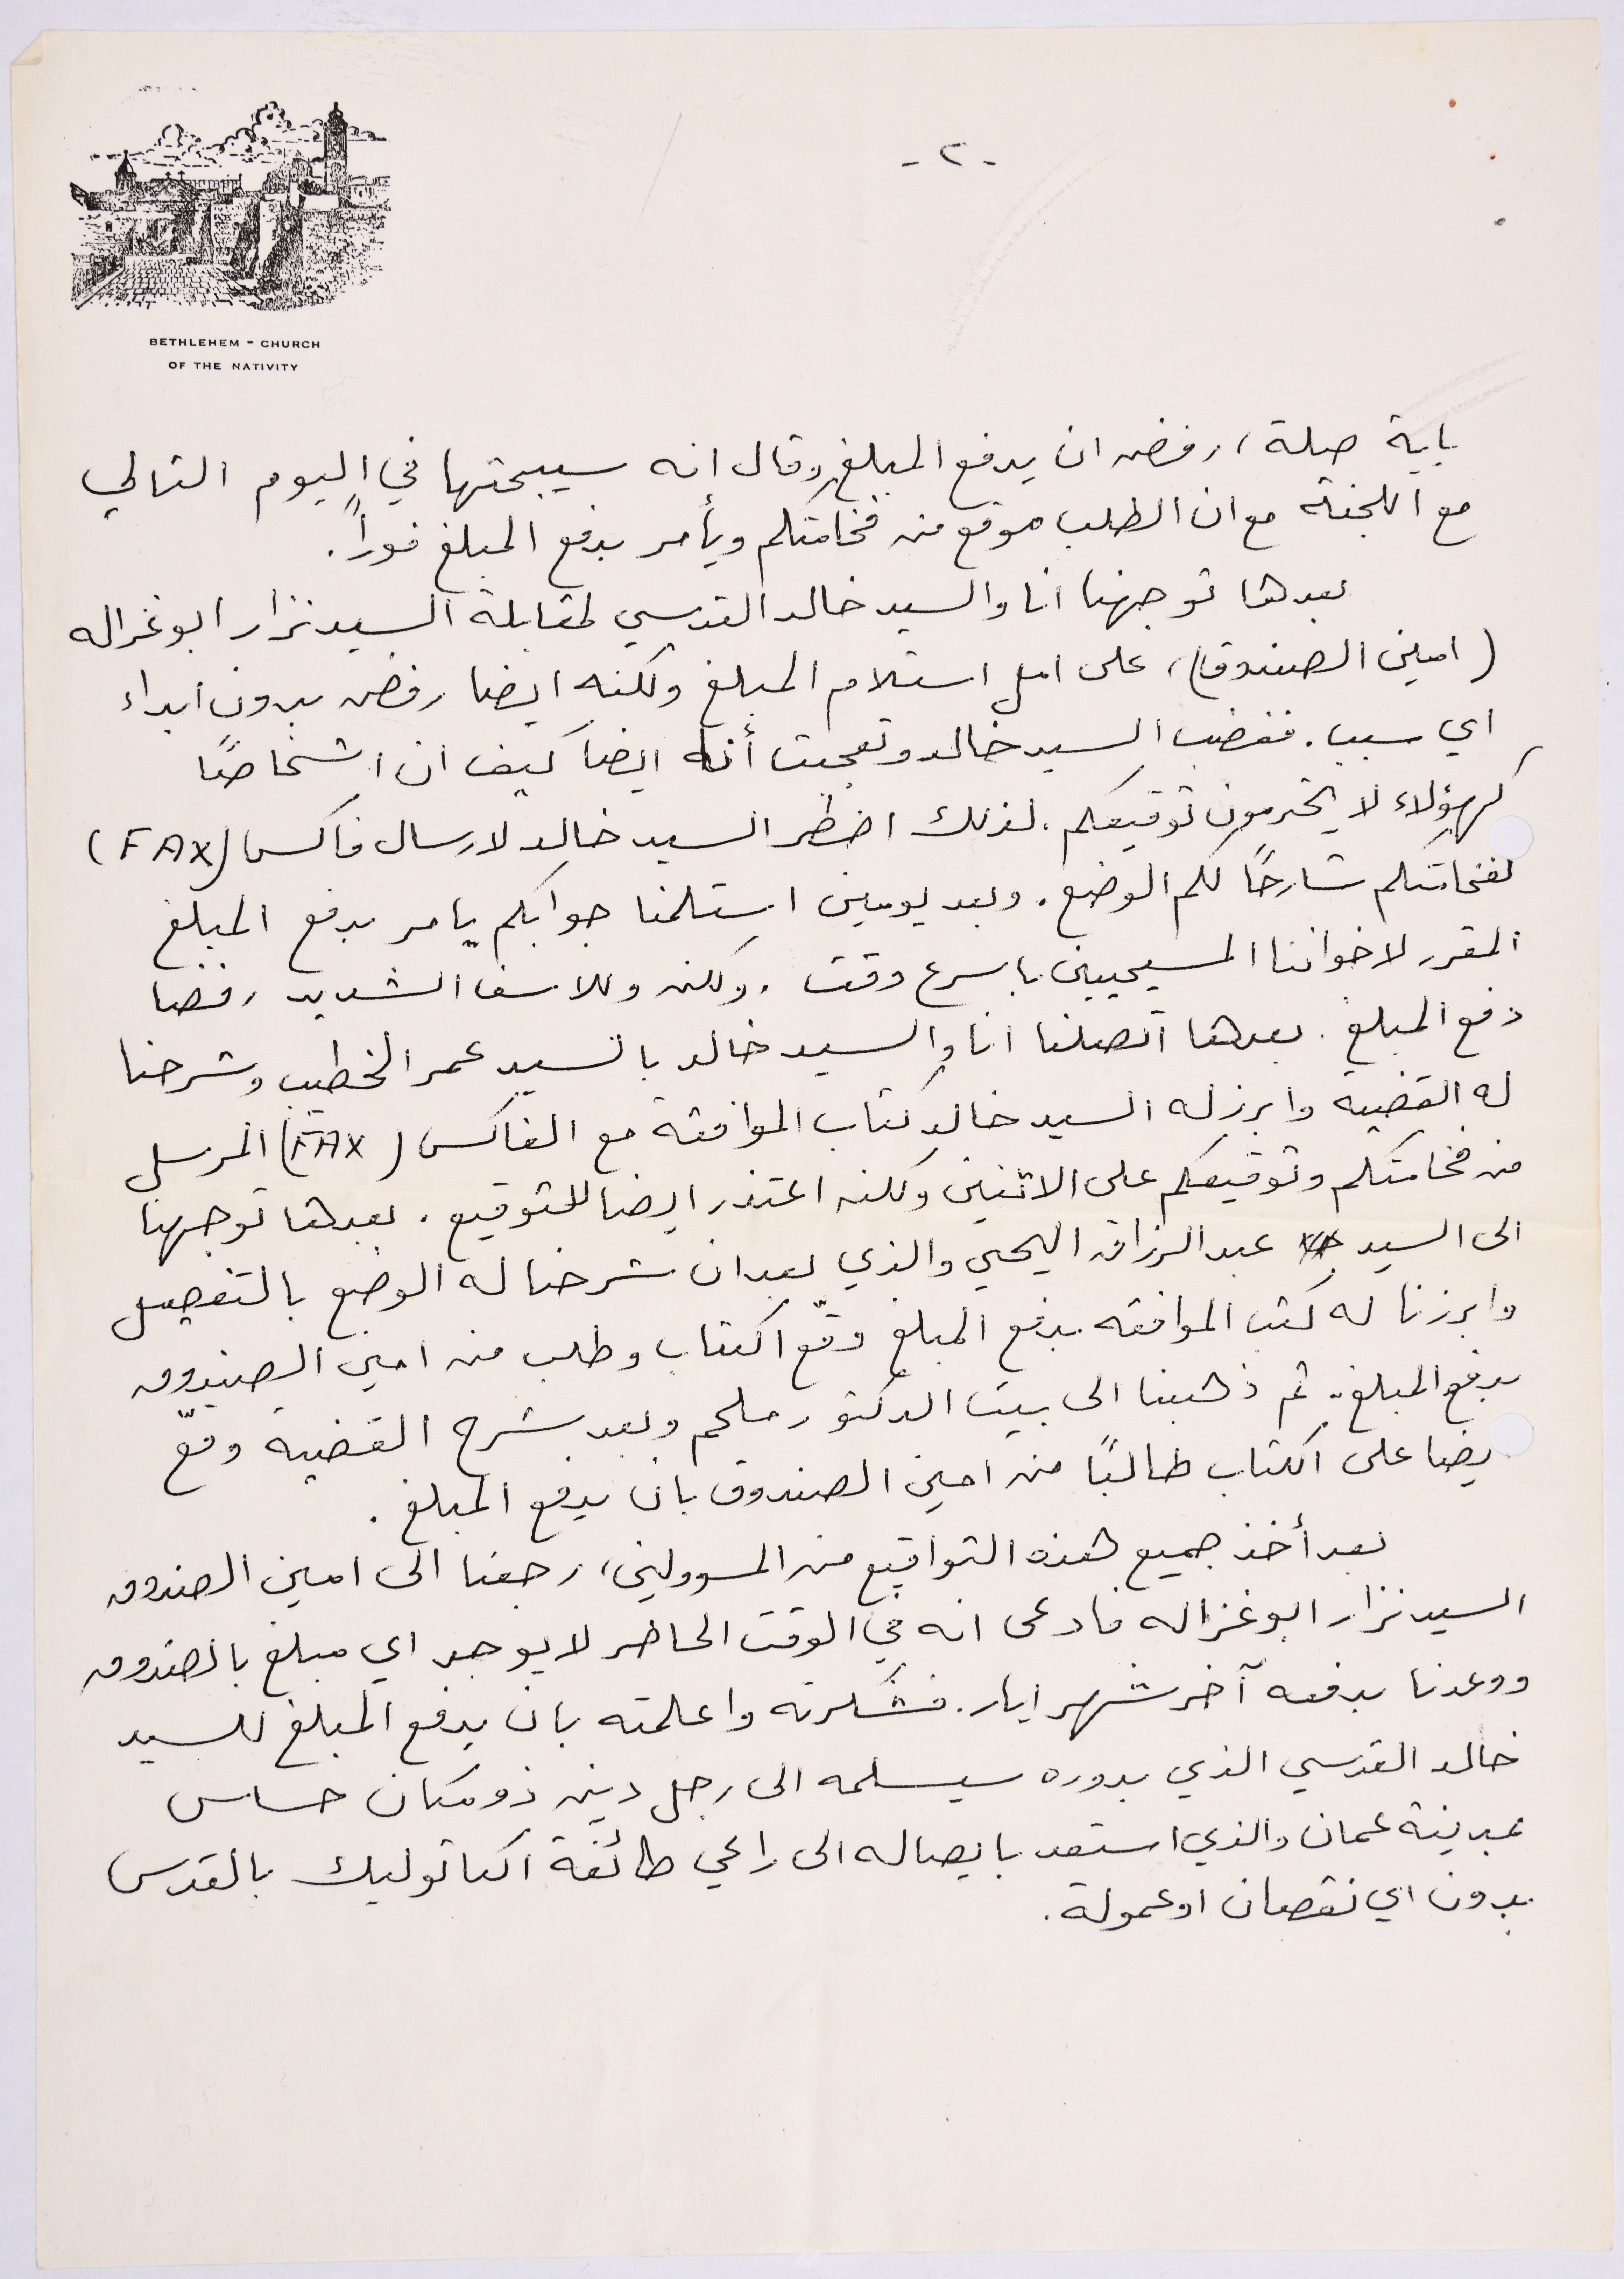 - ٢ -
BETHLEHEM - CHURCH
OF THE NATIVITY
باية صلة، رفض ان يدفع المبلغ وقال انه سيبحثها في اليوم التالي
مع اللجنة مع ان الطلب موقع من فخامتكم ويأمر بدفع المبلغ فوراً.
بعدها توجهنا انا والسيد خالد القدسي لمقابلة السيد نزار ابو غزاله
(امين الصندوق)، على امل استلام المبلغ ولكنه ايضا رفض بدون ابداء
اي سبب. فغضب السيد خالد وتعجبت أنا ايضا كيف ان اشخاصًا
كهؤلاء لا يحترمون توقيعكم. لذلك اضطر السيد خالد لارسال فاكس (FAX)
لفخامتكم شارحًا لكم الوضع. وبعد يومين استلمنا جوابكم يامر بدفع المبلغ
المقرر لاخواننا المسيحيين باسرع وقت. ولكن وللاسف الشديد رفضا
دفع المبلغ. بعدها اتصلنا انا والسيد خالد بالسيد عمر الخطيب وشرحنا
له القضية وابرز له السيد خالد كتاب الموافقة مع الفاكس (FAX) المرسل
من فخامتكم وتوقيعكم على الاثنين ولكنه اعتذر ايضا للتوقيع. بعدها توجهنا
الى السيد عبد الرزاق اليحيى والذي بعد ان شرحنا له الوضع بالتفصيل
وابرزنا له كتب الموافقه بدفع المبلغ وقّع الكتاب وطلب من امين الصندوق
بدفع المبلغ. ثم ذهبنا الى بيت الدكتور ملحم وبعد شرح القضية وقّع
يضا على الكتاب طالبًا من امين الصندوق بان يدفع المبلغ.
بعد أخذ جميع هذه التواقيع من المسوولين، رجعنا الى امين الصندوق
السيد نزار ابو غزاله فادعى انه في الوقت الحاضر لا يوجد اي مبلغ بالصندوق
ووعدنا بدفعه آخر شهر ايار. فشكرته واعلمته بان يدفع المبلغ للسيد
خالد القدسي الذي بدوره سيسلمه الى رجل دين ذو مكان حساس
بمدينة عمان والذي استعد بايصاله الى راعي طائفة الكاتوليك بالقدس
بدون اي نقصان او عمولة.